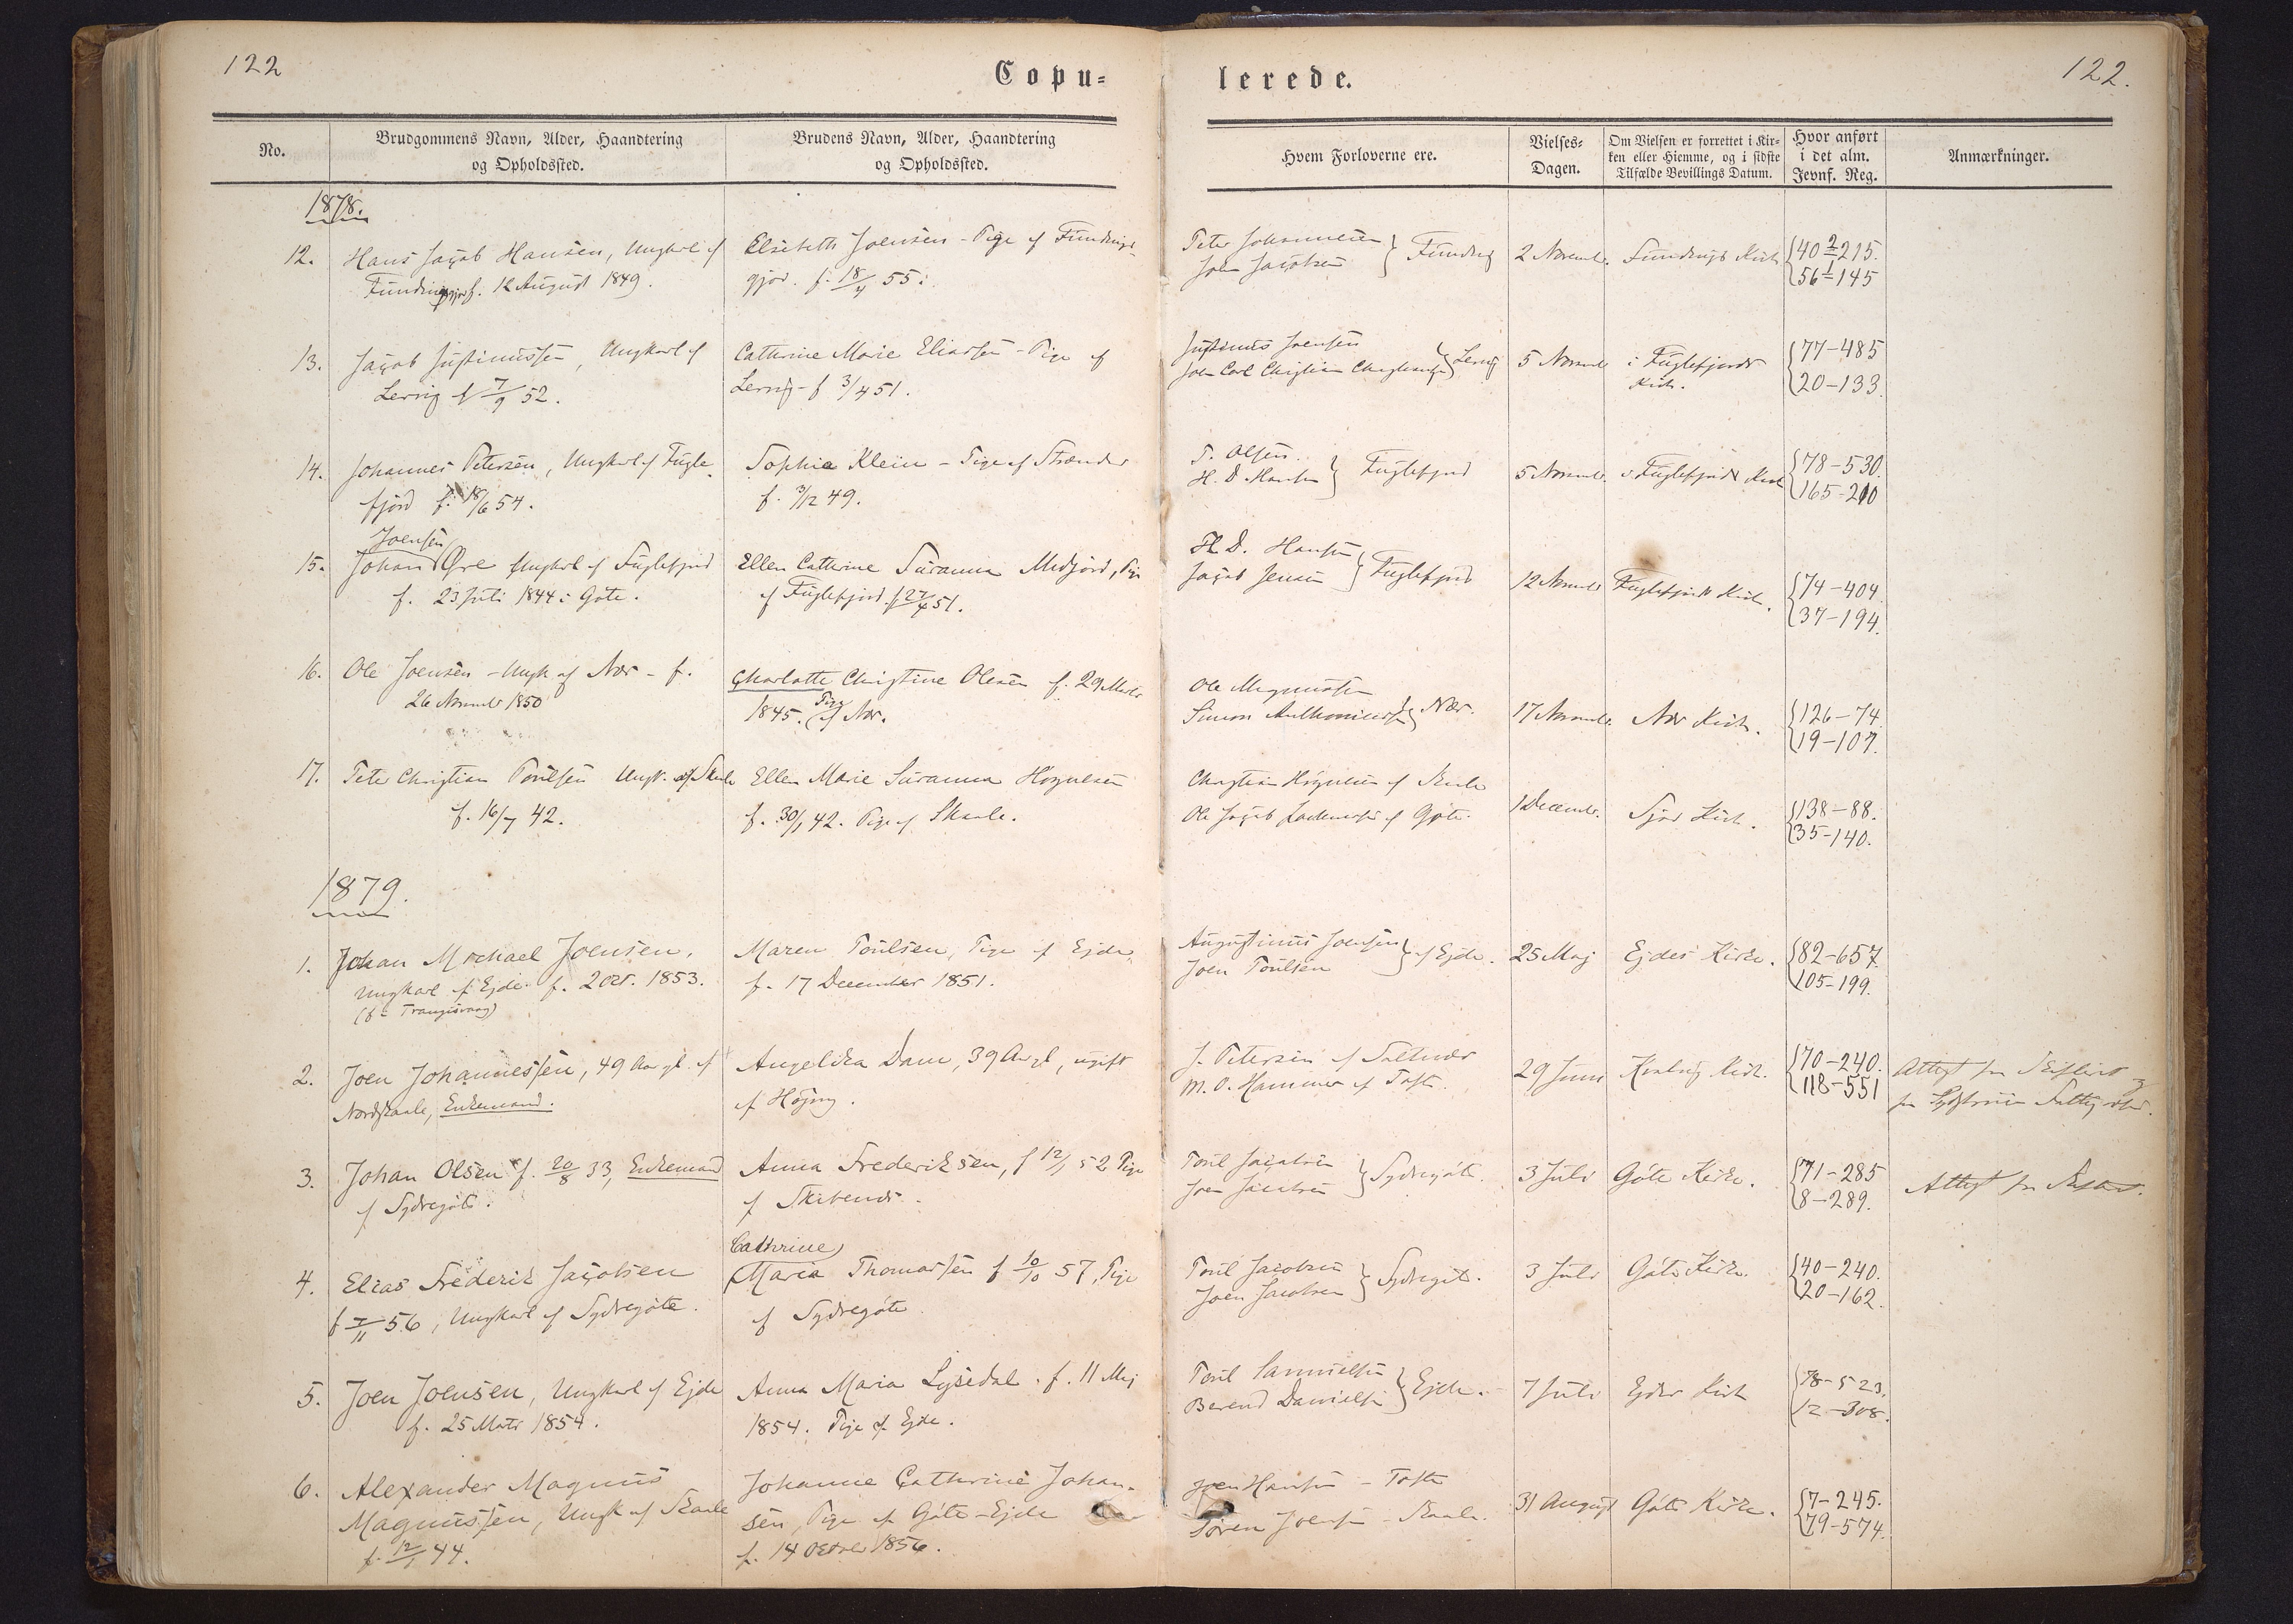 122
Copu-
lerede.
122.
No.
Brudgommens Navn, Alder, Haandtering
og Opholdssted.
Brudens Navn, Alder, Haandtering
og Opholdssted.
Hvem Forloverne ere.
Vielses-
Dagen.
Om Vielsen er forrettet i Kir-
ken eller Hiemme, og i sidste
Tilfælde Bevillings Datum.
Hvor anført
i det alm.
Jevnf. Reg.
Anmærkninger.
1878.
12.
Hans Jacob Hansen, Ungkarl af
f. 12 August 1849.
Elsebeth Joensen - Pige af Fundings-
gjov. f. 18/4 55.
Peter Johannesen
Joen Jacobsen
Funding
2 Novemb.
Fundings Kirk
40 2/ 215.
56 1/ 145
13.
Jacob Justinussen, Ungkarl af
Lervig f 7/9 52.
Cathrine Marie Eliassen - Pige af
Lervig - f 3/4 51.
Justinus Joensen
Joen Carl Christian
Lervig
5 Novemb
i Fuglefjords
Kirk.
77-485
20-133
14.
Johannes Petersen, Ungkarl af Fugle-
fjord f. 18/6 54.
Sophia Klein - Pige af Strænder
f. 3/12 49.
P. Olsen
H. D. Hansen
Fuglefjord
5 Novemb.
i Fuglefjords Kirk
78-530.
165-210
15.
Joensen
Johan Øre Ungkarl af Fuglefjord
f. 23 Juli 1844 i Gøte.
Ellen Cathrine Susanna Midjord, Pige
af Fuglefjord f 27/4 51.
H. D. Hansen
Jacob Jensen
Fuglefjord
12 Novemb
Fuglefjords Kirk.
74-404.
37-194.
16.
Ole Joensen - Ungk af Næs - f.
26 November 1850
Charlotte Christine Olesen f. 29 Marts
1845. Pige af Næs.
Ole Magnussen
Simon
Næs.
17 Novemb.
Næs Kirk.
126-74.
19-107.
17.
Peter Christian Poulsen Ungk. af Skaale
f. 16/7 42.
Ellen Marie Susanna Høgnesen
f. 30/1 42. Pige af Skaale.
Christian Høgnesen af Skaale
Ole Jacob af Gøte.
1 Decemb.
Sjov Kirk.
138-88.
35-140.
1879.
1.
Johan Michael Joensen,
Ungkarl af Ejde f. 2 Oct. 1853.
(f. i Trangisvaag)
Maren Poulsen, Pige af Ejde,
f. 17 December 1851.
Augustinus Joensen
Joen Poulsen
af Ejde.
25 Maj
Ejdes Kirke.
82-657
105-199.
2.
Joen Johannessen, 49 Aar gl. af
Nordskaale, Enkemand.
Angelika Dam, 39 Aar gl, ugift
af Høgvig.
J. Petersen af Saltnæs
M. O. Hammer af Toft.
29 Juni
Kirk.
70-240.
118-551
Attest fra Skifteret og
3.
Johan Olsen f. 20/8 33, Enkemand
af Sydregøte.
Anna Frederiksen, f 12/1 52 Pige
af Skibenæs.
Poul Jacobsen
Joen Jacobsen
Sydregøte.
3 Juli
Gøte Kirke.
71-285
8-289.
Attest fra Skifteret.
4.
Elias Frederik Jacobsen
f 7/11 56, Ungkarl af Sydregøte.
Cathrine
Maria Thomassen f 10/10 57, Pige
af Sydregøte
Poul Jacobsen
Joen Jacobsen
Sydregøt.
3 Juli
Gøte Kirke.
40-240.
20-162.
5.
Joen Joensen, Ungkarl af Ejde
f. 25 Marts 1854.
Anna Maria Lysedal. f. 11 Maj
1854. Pige af Ejde.
Poul Samuelsen
Berend Danielsen
Ejde.
7 Juli
Ejdes Kirk
78-523.
12-308.
6.
Alexander Magnus
Magnussen, Ungk af Skaale
f. 12/1 44.
Johanne Cathrine Johan-
sen, Pige af Gøte-Ejde
f. 14 October 1856.
Joen Hansen - Toft
Søren Joensen - Skaale.
31 August
Gøte Kirke.
7-245.
79-574.